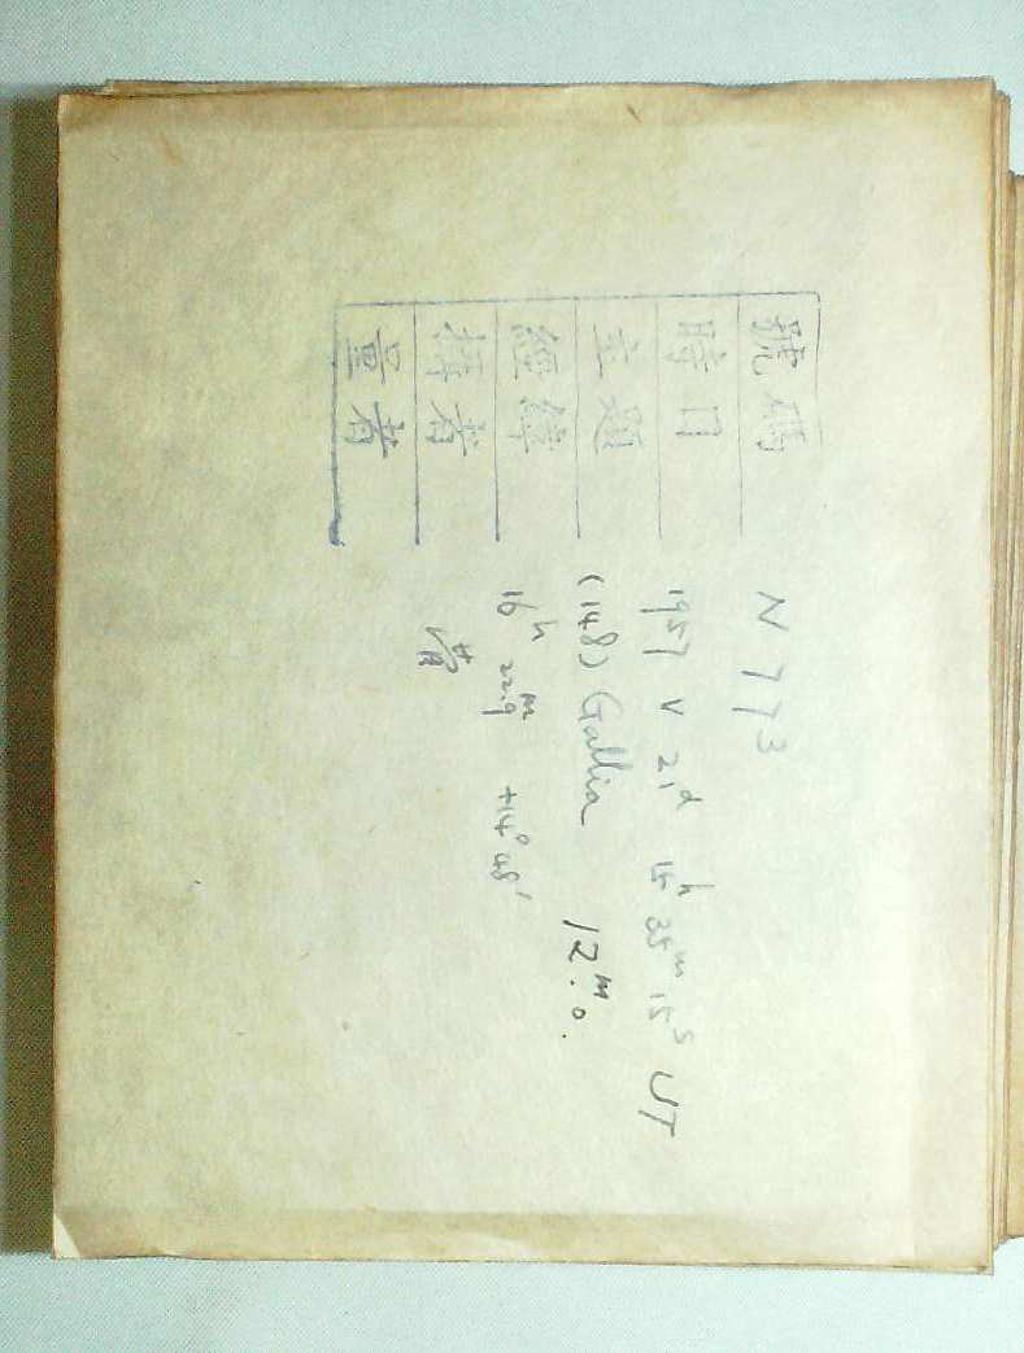 號碼 N 773
時日 1957 V 21ᵈ 15ʰ 35ᵐ 15ˢ UT
主題 (148) Gallia 12ᵐ.0.
經緯 16ʰ 22.9ᵐ +14° 48′
攝者
量者